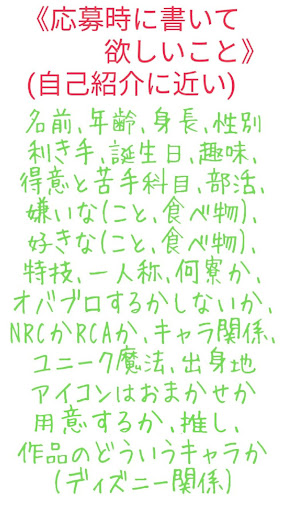 《応募時に書いて
欲しいこと》
(自己紹介に近い)
名前、年齢、身長、性別
利き手、誕生日、趣味、
得意と苦手科目、部活、
嫌いな(こと、食べ物)、
好きな(こと、食べ物)、
特技、一人称、何寮か、
オバブロするかしないか、
NRCかRCAか、キャラ関係、
ユニーク魔法、出身地
アイコンはおまかせか
用意するか、推し、
作品のどういうキャラか
(ディズニー関係)